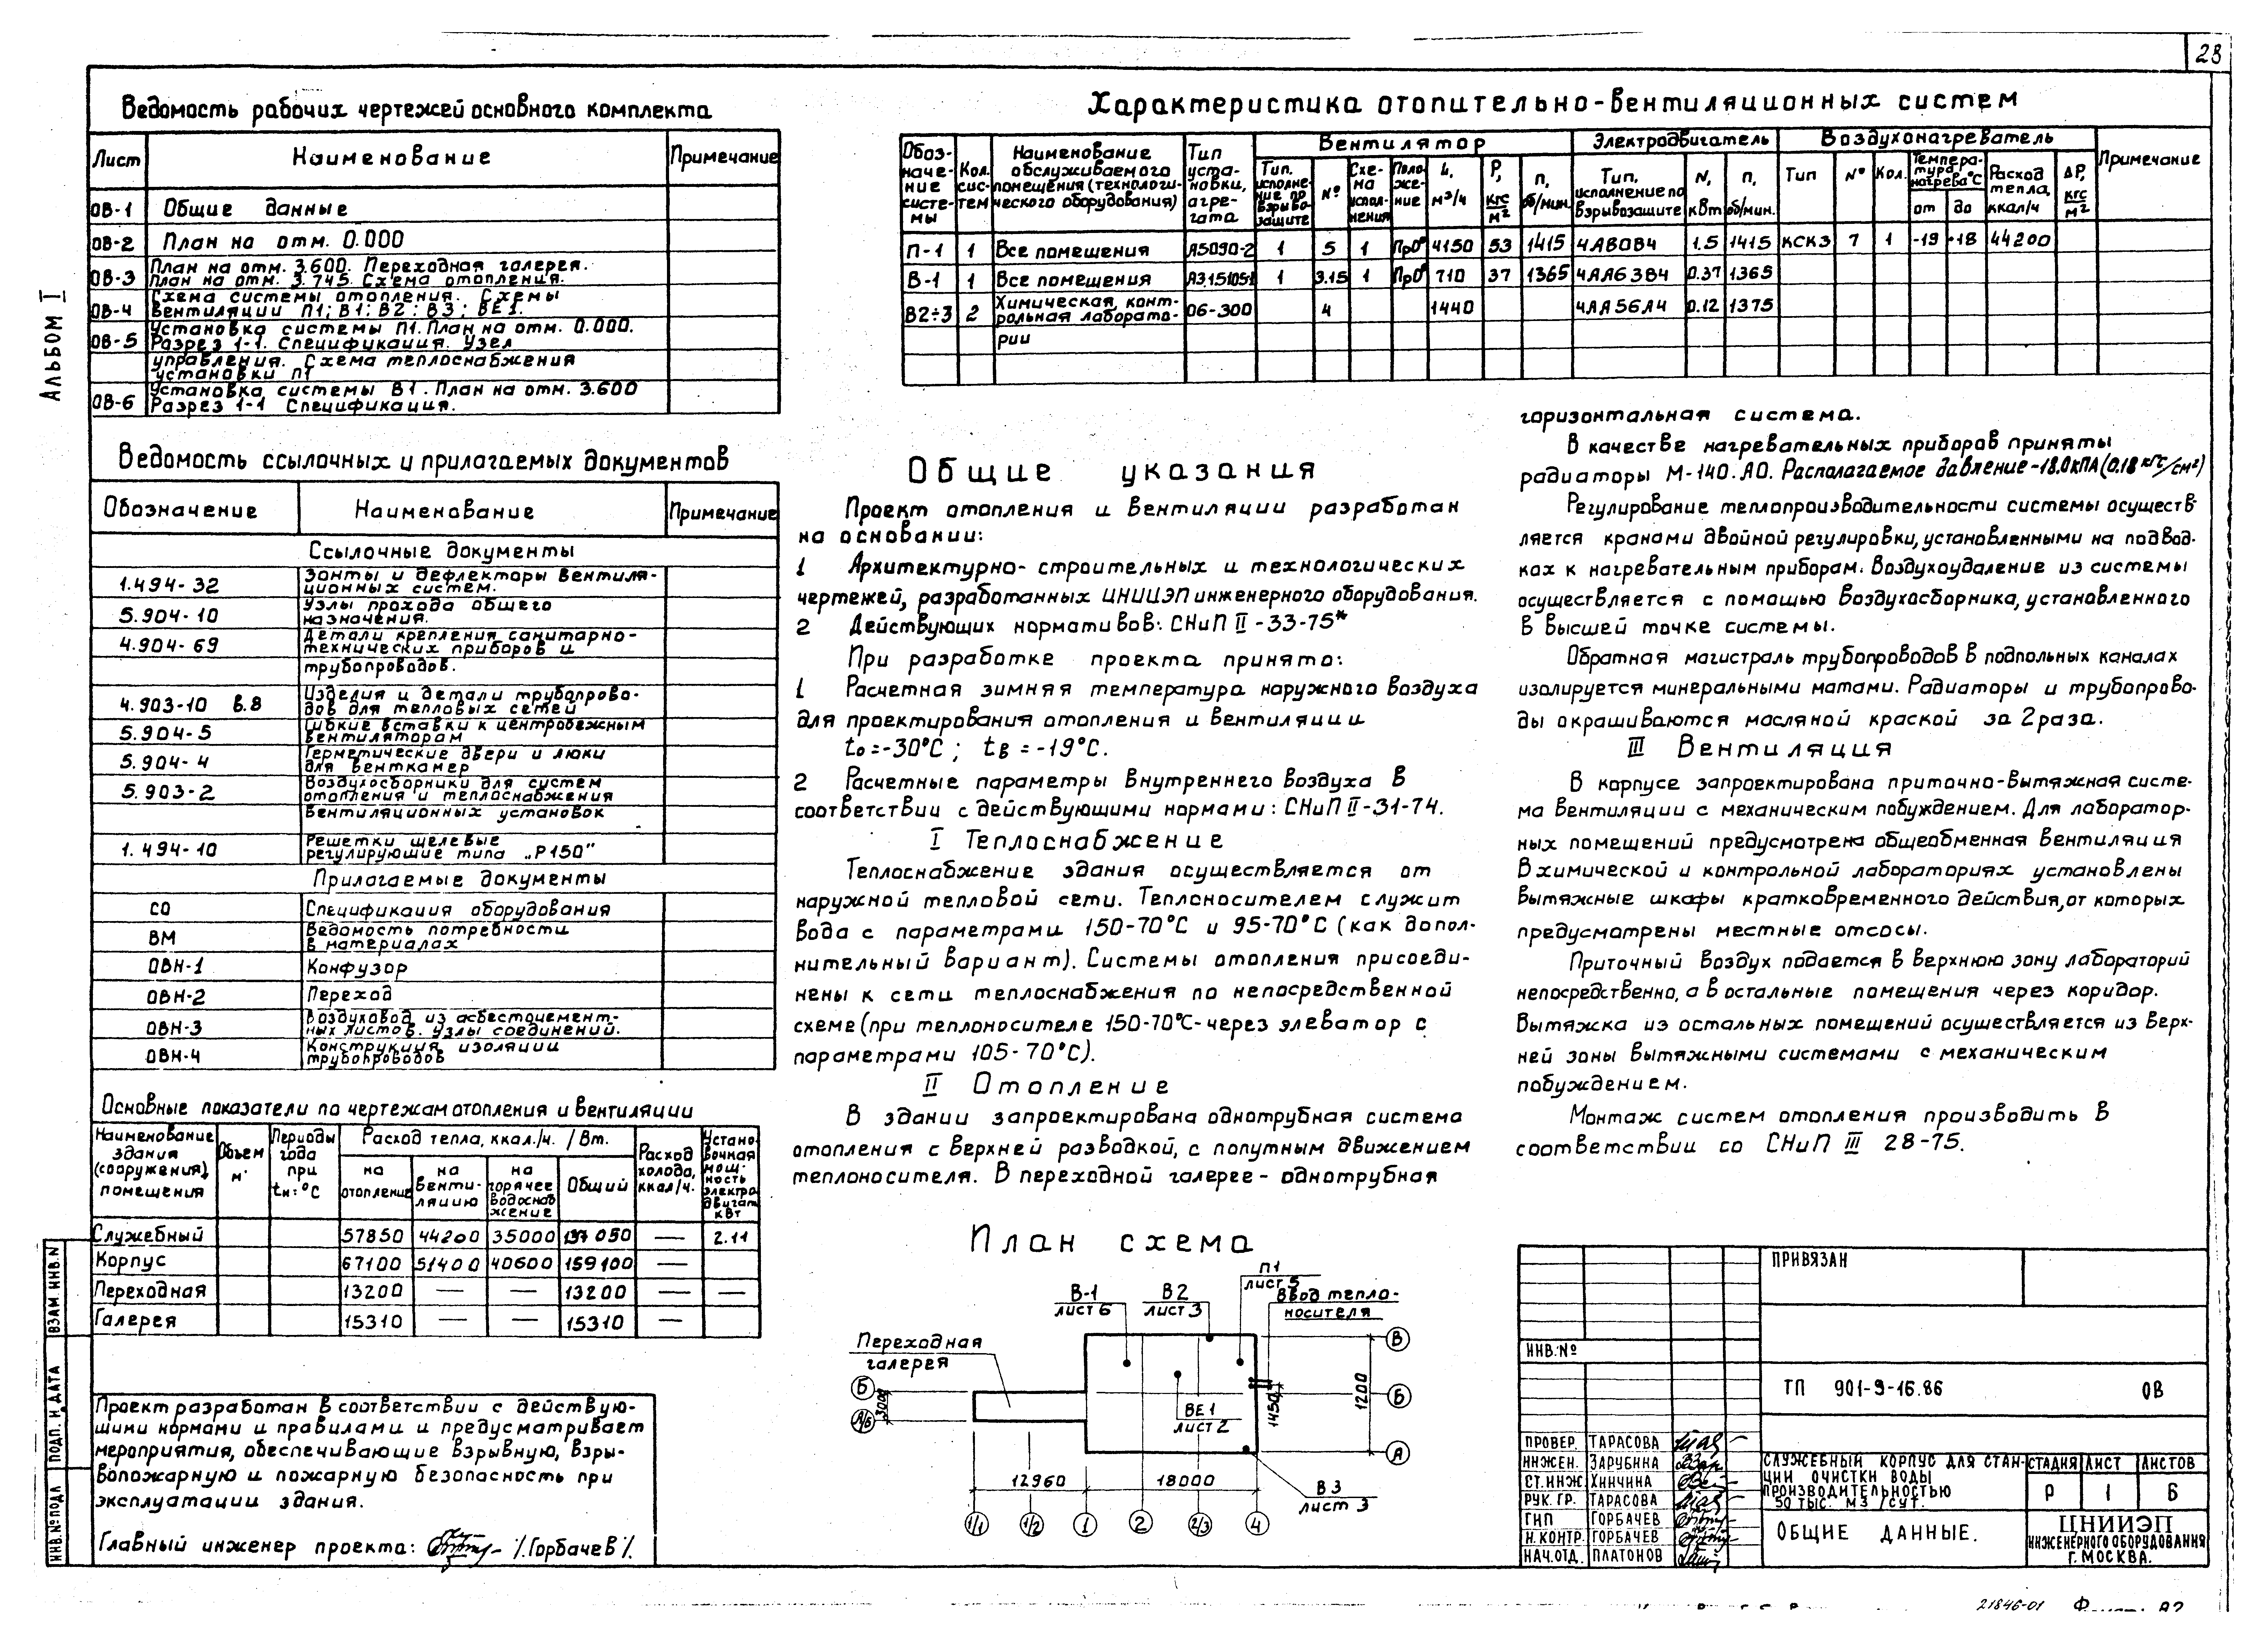 28
Альбом I
Ведомость рабочих чертежей основного комплекта
Лист Наименование Примечание
ОВ-1 Общие данные
ОВ-2 План на отм. 0.000
ОВ-3 План на отм. 3.600. Переходная галерея.
План на отм. 3.745. Схема отопления.
ОВ-4 Схема системы отопления. Схемы
вентиляции П1; В1; В2; В3; ВЕ1.
ОВ-5 Установка системы П1. План на отм. 0.000.
Разрез 1-1. Спецификация. Узел
управления. Схема теплоснабжения
установки П1
ОВ-6 Установка системы В1. План на отм. 3.600
Разрез 1-1 Спецификация.
Ведомость ссылочных и прилагаемых документов
Обозначение Наименование Примечание
Ссылочные документы
1.494-32 Зонты и дефлекторы вентиля-
ционных систем.
5.904-10 Узлы прохода общего
назначения.
4.904-69 Детали крепления санитарно-
технических приборов и
трубопроводов.
4.903-10 в.8 Изделия и детали трубопрово-
дов для тепловых сетей
5.904-5 Гибкие вставки к центробежным
вентиляторам
5.904-4 Герметические двери и люки
для венткамер
5.903-2 Воздухосборники для систем
отопления и теплоснабжения
вентиляционных установок
1.494-10 Решетки щелевые
регулирующие типа „Р150"
Прилагаемые документы
СО Спецификация оборудования
ВМ Ведомость потребности
в материалах
ОВН-1 Конфузор
ОВН-2 Переход
ОВН-3 Воздуховод из асбестоцемент-
ных листов. Узлы соединений.
ОВН-4 Конструкция изоляции
трубопроводов
Основные показатели по чертежам отопления и вентиляции
Наименование здания (сооружения), помещения
Объем м³
Периоды года при tн:°С
Расход тепла, ккал./ч. / Вт.
на отопление
на венти-ляцию
на горячее водоснаб жение
Общий
Расход холода, ккал/ч.
Устано-вочная мощ-ность электро двигат. кВт
Служебный 57850 44200 35000 137050 — 2.11
Корпус 67100 51400 40600 159100 —
Переходная 13200 — — 13200 — —
Галерея 15310 — — 15310 —
Проект разработан в соответствии с действую-
щими нормами и правилами и предусматривает
мероприятия, обеспечивающие взрывную, взры-
вопожарную и пожарную безопасность при
эксплуатации здания.
Главный инженер проекта: /Горбачев/.
Характеристика отопительно-вентиляционных систем
Обоз-наче-ние систе-мы
Кол. сис-тем
Наименование обслуживаемого помещения (технологи-ческого оборудования)
Тип уста-новки, агре-гата
Вентилятор
Тип. исполне-ние по взрыво-защите
№
Схе-ма испол-нения
Поло-же-ние
L, м³/ч
Р, кгс/м²
п, об/мин.
Электродвигатель
Тип, исполнение по взрывозащите
N, кВт
п, об/мин.
Воздухонагреватель
Тип
№
Кол.
Темпера-тура нагрева°С
от
до
Расход тепла, ккал/ч
ΔР, кгс/м²
Примечание
П-1 1 Все помещения А5090-2 1 5 1 Пр0° 4150 53 1415 4А80В4 1.5 1415 КСК3 7 1 -19 +18 44200
В-1 1 Все помещения А3.15105-1 1 3.15 1 Пр0° 710 37 1365 4АА63В4 0.37 1365
В2÷3 2 Химическая, конт-рольная лаборато-рии 06-300 4 1440 4АА56А4 0.12 1375
Общие указания
Проект отопления и вентиляции разработан
на основании:
1 Архитектурно-строительных и технологических
чертежей, разработанных ЦНИИЭП инженерного оборудования.
2 Действующих нормативов: СНиП II-33-75*
При разработке проекта принято:
1 Расчетная зимняя температура наружного воздуха
для проектирования отопления и вентиляции
tо=-30°С; tв=-19°С.
2 Расчетные параметры внутреннего воздуха в
соответствии с действующими нормами: СНиП II-31-74.
I Теплоснабжение
Теплоснабжение здания осуществляется от
наружной тепловой сети. Теплоносителем служит
вода с параметрами 150-70°С и 95-70°С (как допол-
нительный вариант). Системы отопления присоеди-
нены к сети теплоснабжения по непосредственной
схеме (при теплоносителе 150-70°С-через элеватор с
параметрами 105-70°С).
II Отопление
В здании запроектирована однотрубная система
отопления с верхней разводкой, с попутным движением
теплоносителя. В переходной галерее - однотрубная
горизонтальная система.
В качестве нагревательных приборов приняты
радиаторы М-140.АО. Располагаемое давление-18.0кПА (0.18 кгс/см²)
Регулирование теплопроизводительности системы осуществ-
ляется кранами двойной регулировки, установленными на подвод-
ках к нагревательным приборам. Воздухоудаление из системы
осуществляется с помощью воздухосборника, установленного
в высшей точке системы.
Обратная магистраль трубопроводов в подпольных каналах
изолируется минеральными матами. Радиаторы и трубопрово-
ды окрашиваются масляной краской за 2 раза.
III Вентиляция
В корпусе запроектирована приточно-вытяжная систе-
ма вентиляции с механическим побуждением. Для лаборатор-
ных помещений предусмотрена общеобменная вентиляция
В химической и контрольной лабораториях установлены
вытяжные шкафы кратковременного действия, от которых
предусмотрены местные отсосы.
Приточный воздух подается в верхнюю зону лабораторий
непосредственно, а в остальные помещения через коридор.
Вытяжка из остальных помещений осуществляется из верх-
ней зоны вытяжными системами с механическим
побуждением.
Монтаж систем отопления производить в
соответствии со СНиП III 28-75.
План схема
Переходная
галерея
В-1
лист 6
В2
лист 3
П1
лист 5
Ввод тепло-
носителя
ВЕ1
лист 2
В3
лист 3
Б
А/Б
3000
1450
1200
В
Б
А
12960 18000
1/1 1/2 1 2 2/3 4
ПРИВЯЗАН
ИНВ.№
ТП 901-9-16.86 ОВ
ПРОВЕР. ТАРАСОВА
ИНЖЕН. ЗАРУБИНА
СТ.ИНЖ ХИНЧИНА
РУК. ГР. ТАРАСОВА
ГИП ГОРБАЧЕВ
Н.КОНТР ГОРБАЧЕВ
НАЧ.ОТД. ПЛАТОНОВ
СЛУЖЕБНЫЙ КОРПУС ДЛЯ СТАН-
ЦИИ ОЧИСТКИ ВОДЫ
ПРОИЗВОДИТЕЛЬНОСТЬЮ
50 ТЫС. М3/СУТ.
СТАДИЯ ЛИСТ ЛИСТОВ
Р 1 6
ОБЩИЕ ДАННЫЕ.
ЦНИИЭП
ИНЖЕНЕРНОГО ОБОРУДОВАНИЯ
Г. МОСКВА.
ВЗАМ. ИНВ. N
ПОДП. И ДАТА
ИНВ. № ПОДЛ
21846-01